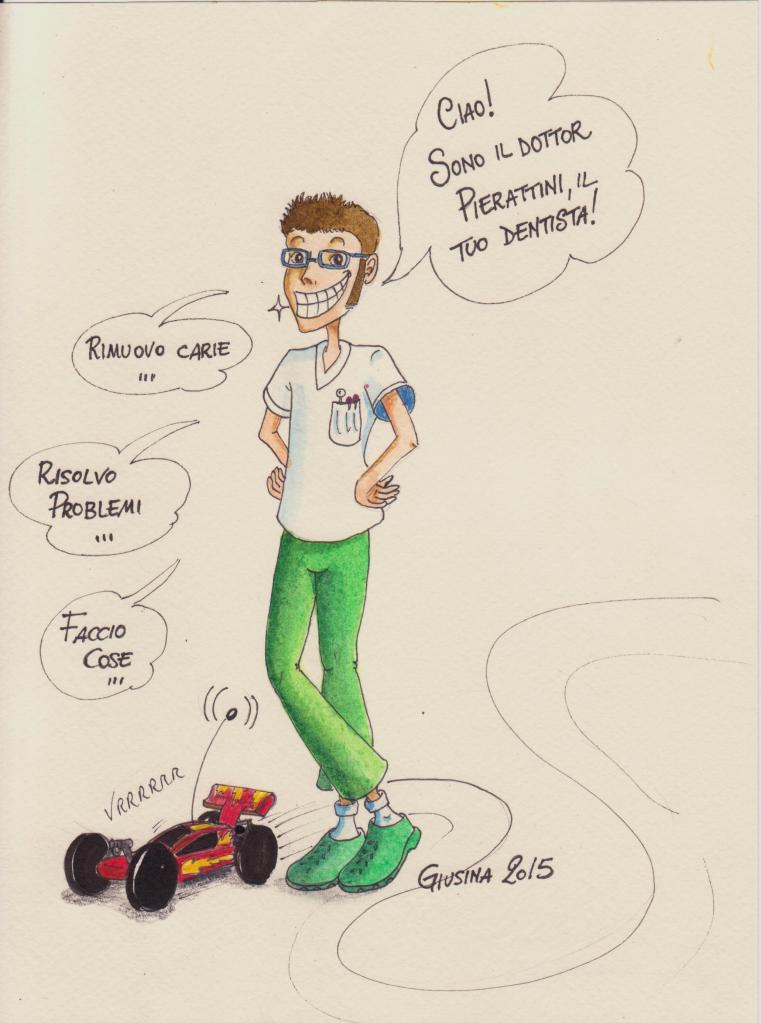 CIAO!
SONO IL DOTTOR
PIERATTINI, IL
TUO DENTISTA!
RIMUOVO CARIE
...
RISOLVO
PROBLEMI
...
FACCIO
COSE
...
VRRRRRR
GIUSINA 2015